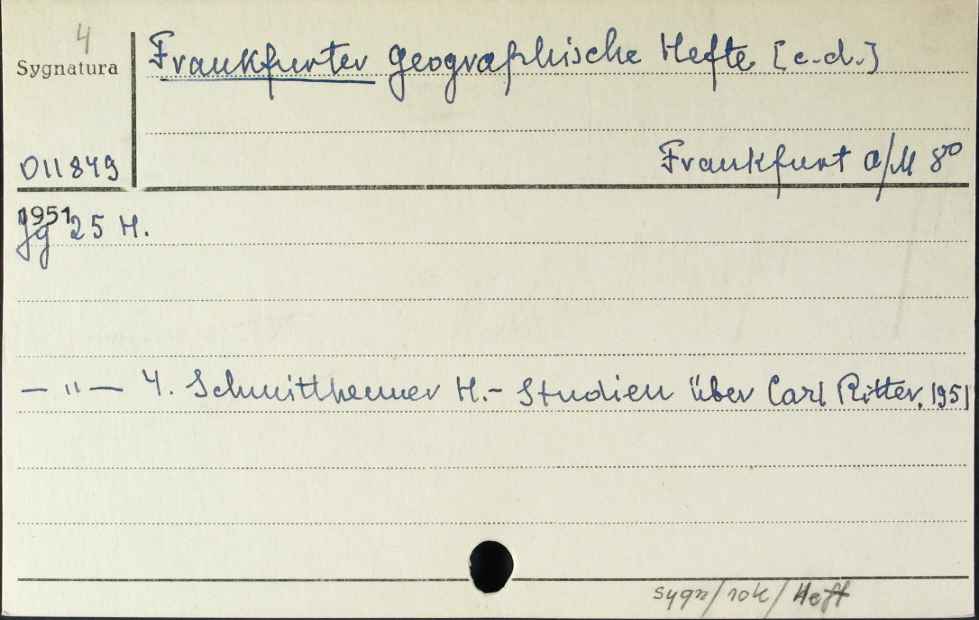 4
Sygnatura
Frankfurter geographische Hefte [c.d.]
Frankfurt a/M 8°
011849
1951
Jg 25 H.
— " — 4. Schmitthenner H.- Studien über Carl Ritter, 1951
sygn/rok/Heft